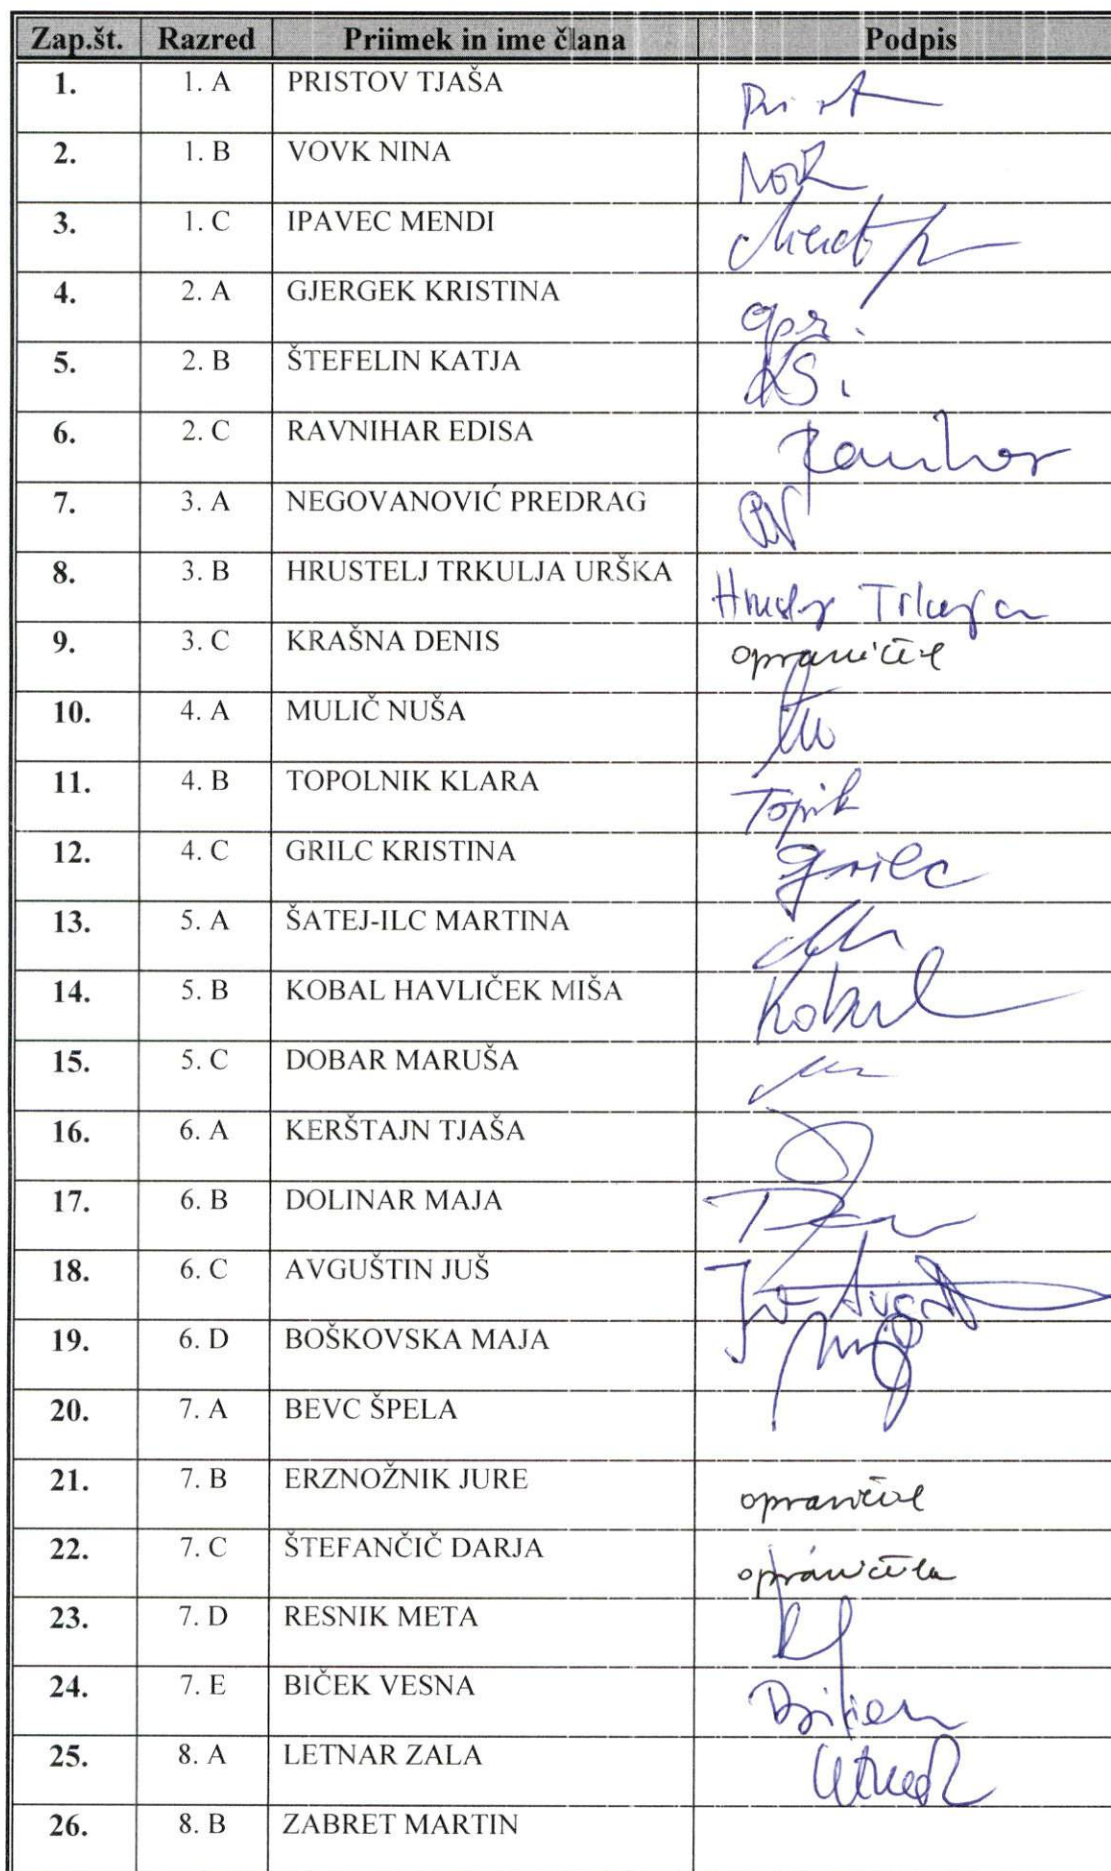 Zap.št. Razred Priimek in ime člana Podpis
1. 1. A PRISTOV TJAŠA
2. 1. B VOVK NINA
3. 1. C IPAVEC MENDI
4. 2. A GJERGEK KRISTINA opr.
5. 2. B ŠTEFELIN KATJA KŠ.
6. 2. C RAVNIHAR EDISA Ravnihar
7. 3. A NEGOVANOVIĆ PREDRAG PN
8. 3. B HRUSTELJ TRKULJA URŠKA
9. 3. C KRAŠNA DENIS opravičil
10. 4. A MULIČ NUŠA
11. 4. B TOPOLNIK KLARA Topnik
12. 4. C GRILC KRISTINA Grilc
13. 5. A ŠATEJ-ILC MARTINA
14. 5. B KOBAL HAVLIČEK MIŠA Kobal
15. 5. C DOBAR MARUŠA
16. 6. A KERŠTAJN TJAŠA
17. 6. B DOLINAR MAJA
18. 6. C AVGUŠTIN JUŠ
19. 6. D BOŠKOVSKA MAJA
20. 7. A BEVC ŠPELA
21. 7. B ERZNOŽNIK JURE opravičil
22. 7. C ŠTEFANČIČ DARJA opravičila
23. 7. D RESNIK META
24. 7. E BIČEK VESNA
25. 8. A LETNAR ZALA
26. 8. B ZABRET MARTIN